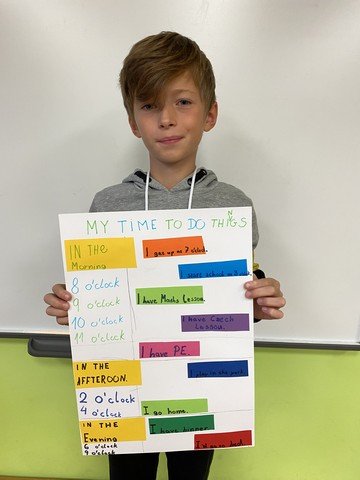 MY TIME TO DO THINGS
IN THE
Morning
I get up at 7 o'clock.
I start school at 8
8 o'clock
9 o'clock
I have Maths Lesson.
10 o'clock
I have Czech
Lesson.
11 o'clock
I have PE.
IN THE
AFFTERNOON.
I play in the park.
2 o'clock
4 o'clock
I go home.
IN THE
Evening
I have dinner.
6 o'clock
9 o'clock
I go to bed.